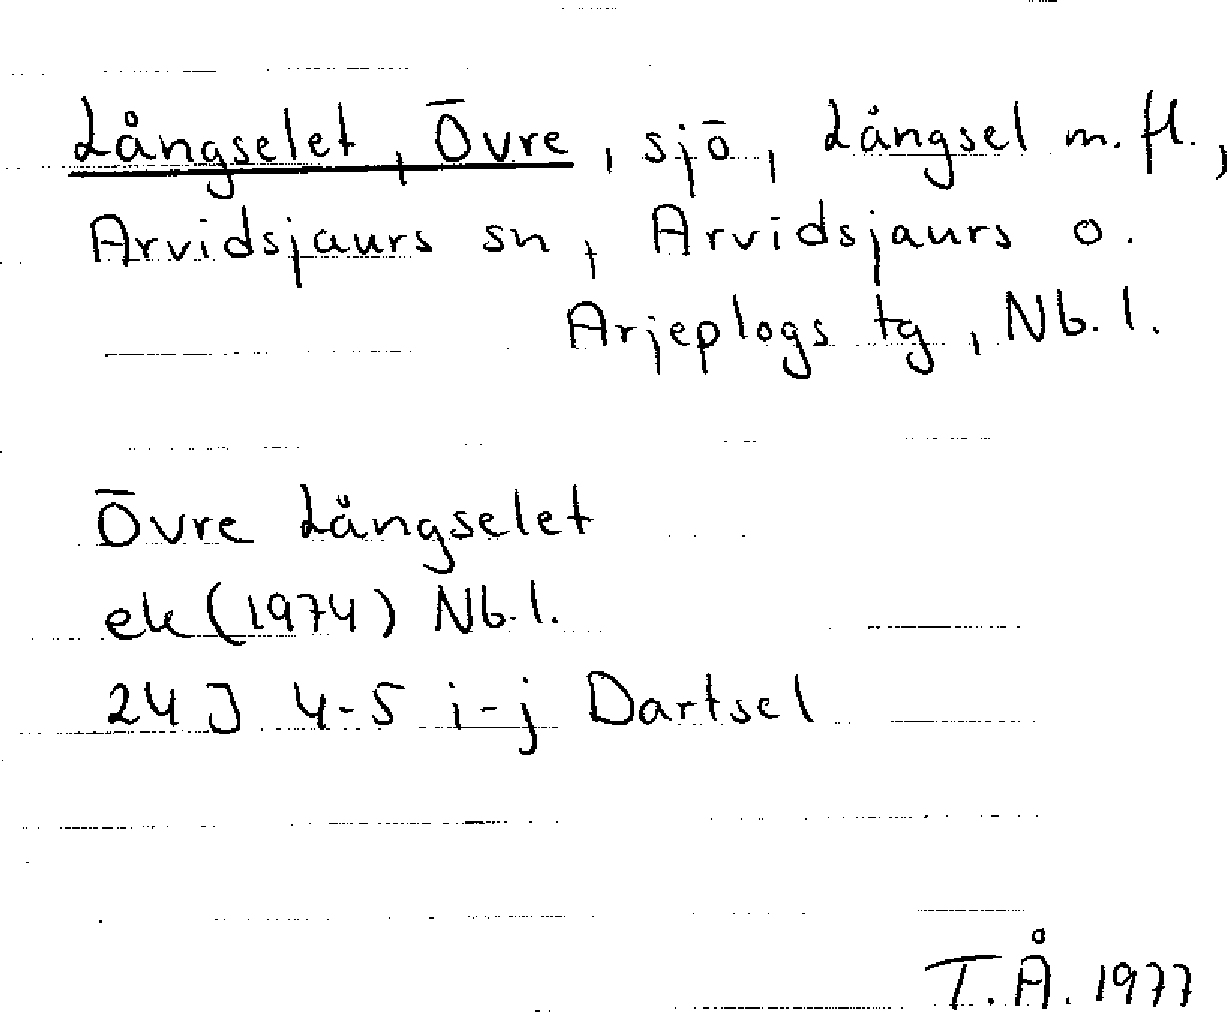 Långselet, Övre, sjö, Långsel m. fl.,
Arvidsjaurs sn, Arvidsjaurs o.
Arjeplogs tg, Nb. l.
Övre Långselet
ek (1974) Nb. l.
24 J 4-5 i-j Dartsel
T.Å. 1977